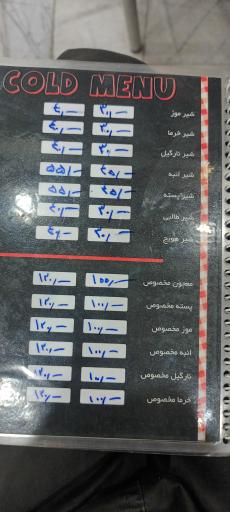 COLD MENU
شیر موز ۳۰/- ۴۰/-
شیر خرما ۳۰/- ۴۰/-
شیر نارگیل ۳۰/- ۴۰/-
شیر انبه ۴۵/- ۵۵/-
شیر پسته ۴۵/- ۵۵/-
شیر طالبی ۳۰/- ۴۰/-
شیر هویج ۳۰/- ۴۰/-
معجون مخصوص ۱۰۰/- ۱۲۰/-
پسته مخصوص ۱۰۰/- ۱۲۰/-
موز مخصوص ۱۰۰/- ۱۲۰/-
انبه مخصوص ۱۰۰/- ۱۲۰/-
نارگیل مخصوص ۱۰۰/- ۱۲۰/-
خرما مخصوص ۱۰۰/- ۱۲۰/-